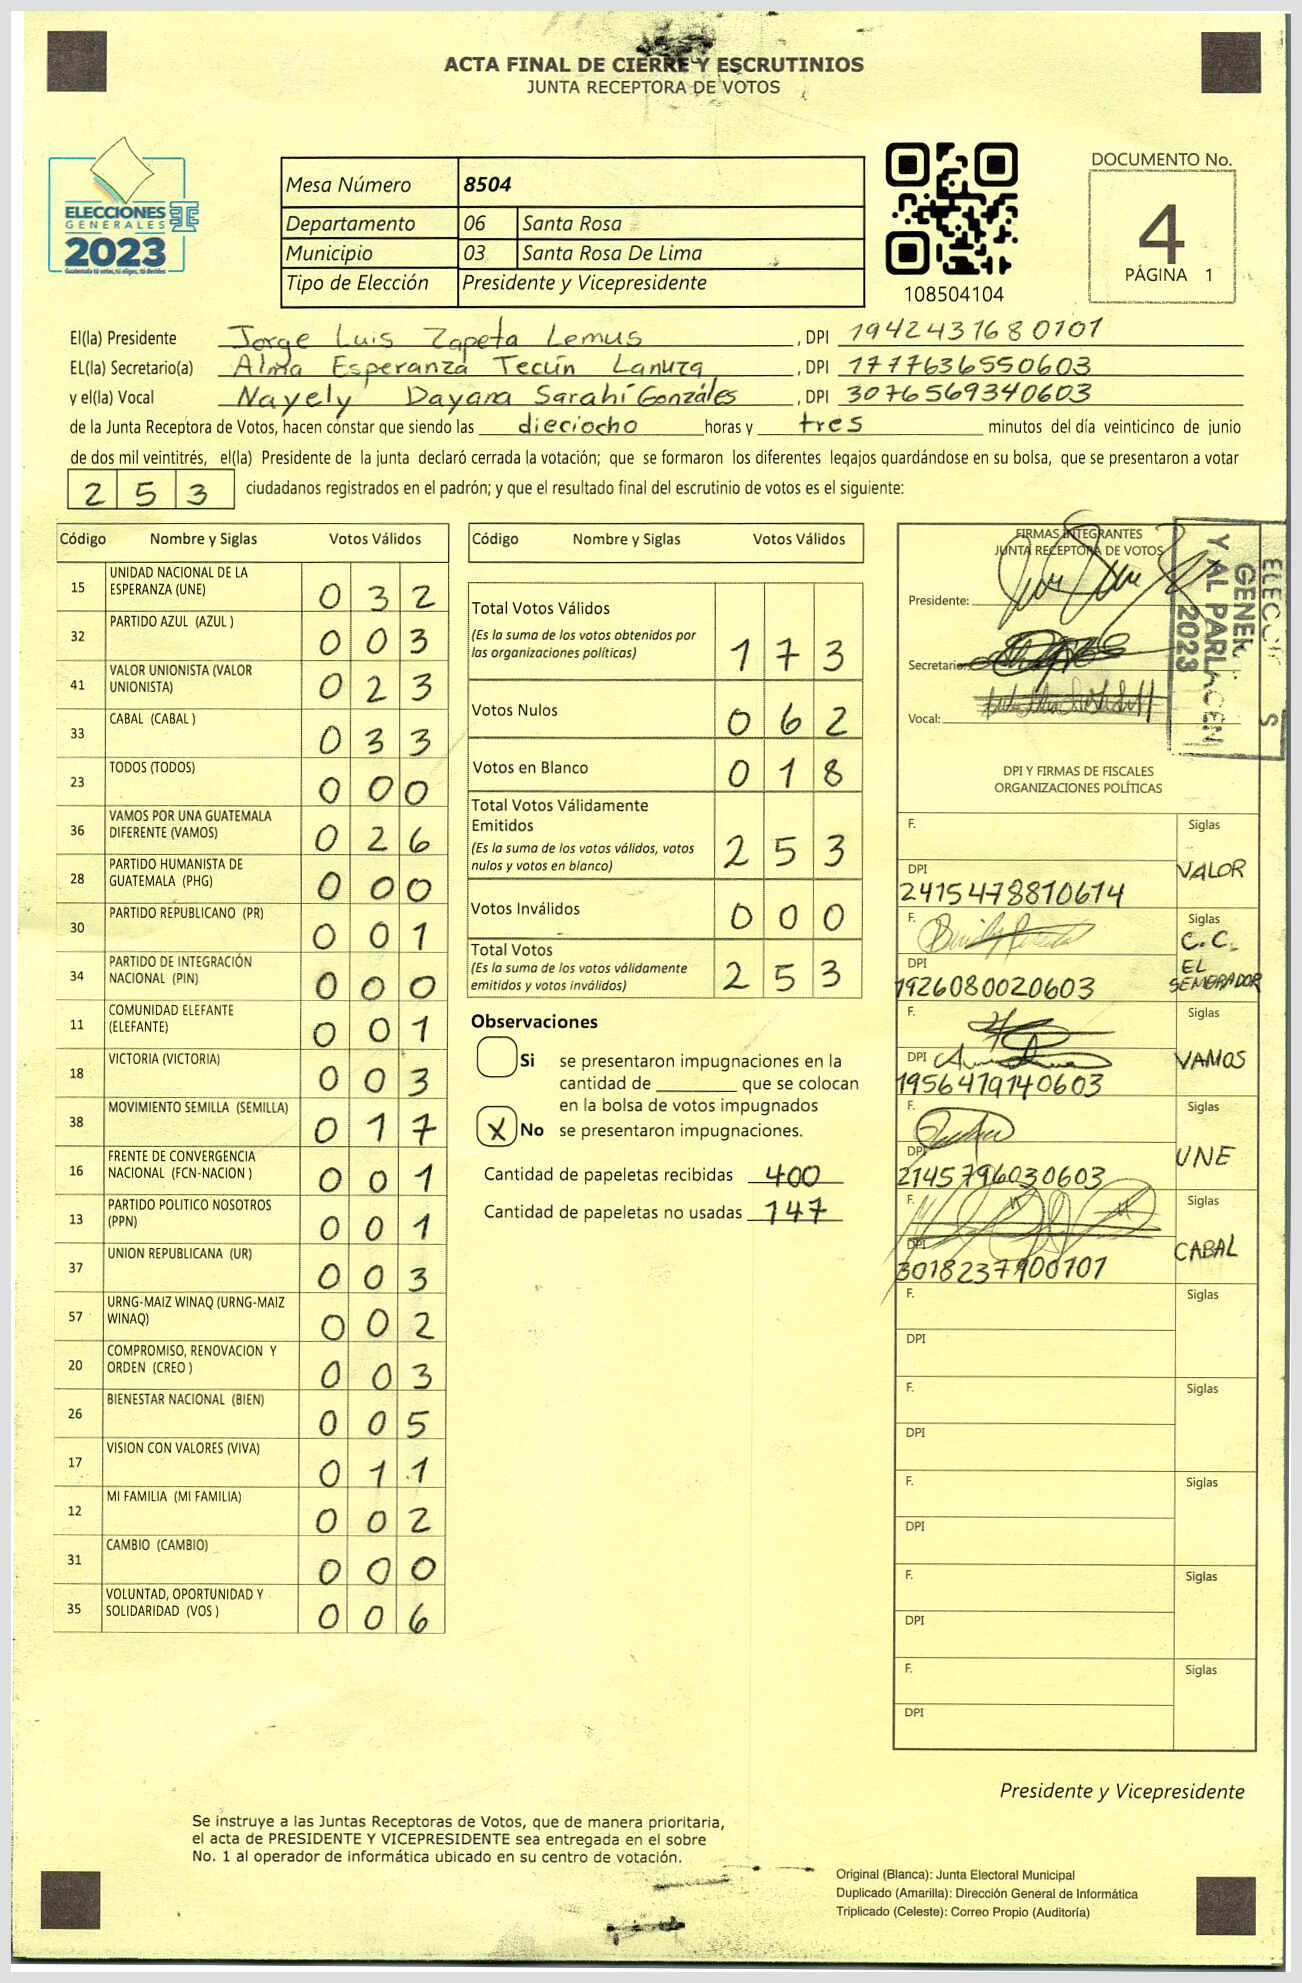 ACTA FINAL DE CIERRE Y ESCRUTINIOS
JUNTA RECEPTORA DE VOTOS
ELECCIONES
GENERALES
2023
Guatemala tú votas, tú eliges, tú decides
Mesa Número 8504
Departamento 06 Santa Rosa
Municipio 03 Santa Rosa De Lima
Tipo de Elección Presidente y Vicepresidente
108504104
DOCUMENTO No.
4
PÁGINA 1
El(la) Presidente Jorge Luis Zapeta Lemus, DPI 1942431680101
EL(la) Secretario(a) Alma Esperanza Tecún Lanuza, DPI 1777636550603
y el(la) Vocal Nayely Dayana Sarahí Gonzáles, DPI 3076569340603
de la Junta Receptora de Votos, hacen constar que siendo las dieciocho horas y tres minutos del día veinticinco de junio
de dos mil veintitrés, el(la) Presidente de la junta declaró cerrada la votación; que se formaron los diferentes legajos guardándose en su bolsa, que se presentaron a votar
253 ciudadanos registrados en el padrón; y que el resultado final del escrutinio de votos es el siguiente:
Código Nombre y Siglas Votos Válidos
15 UNIDAD NACIONAL DE LA ESPERANZA (UNE) 032
32 PARTIDO AZUL (AZUL ) 003
41 VALOR UNIONISTA (VALOR UNIONISTA) 023
33 CABAL (CABAL ) 033
23 TODOS (TODOS) 000
36 VAMOS POR UNA GUATEMALA DIFERENTE (VAMOS) 026
28 PARTIDO HUMANISTA DE GUATEMALA (PHG) 000
30 PARTIDO REPUBLICANO (PR) 001
34 PARTIDO DE INTEGRACIÓN NACIONAL (PIN) 000
11 COMUNIDAD ELEFANTE (ELEFANTE) 001
18 VICTORIA (VICTORIA) 003
38 MOVIMIENTO SEMILLA (SEMILLA) 017
16 FRENTE DE CONVERGENCIA NACIONAL (FCN-NACION ) 001
13 PARTIDO POLITICO NOSOTROS (PPN) 001
37 UNION REPUBLICANA (UR) 003
57 URNG-MAIZ WINAQ (URNG-MAIZ WINAQ) 002
20 COMPROMISO, RENOVACION Y ORDEN (CREO ) 003
26 BIENESTAR NACIONAL (BIEN) 005
17 VISION CON VALORES (VIVA) 011
12 MI FAMILIA (MI FAMILIA) 002
31 CAMBIO (CAMBIO) 000
35 VOLUNTAD, OPORTUNIDAD Y SOLIDARIDAD (VOS ) 006
Código Nombre y Siglas Votos Válidos
Total Votos Válidos 173
(Es la suma de los votos obtenidos por
las organizaciones políticas)
Votos Nulos 062
Votos en Blanco 018
Total Votos Válidamente
Emitidos 253
(Es la suma de los votos válidos, votos
nulos y votos en blanco)
Votos Inválidos 000
Total Votos 253
(Es la suma de los votos válidamente
emitidos y votos inválidos)
Observaciones
Si se presentaron impugnaciones en la
cantidad de ________ que se colocan
en la bolsa de votos impugnados
X No se presentaron impugnaciones.
Cantidad de papeletas recibidas 400
Cantidad de papeletas no usadas 147
FIRMAS INTEGRANTES
JUNTA RECEPTORA DE VOTOS
Presidente:
Secretario
Vocal:
GENER
Y AL PARLACEN
2023
DPI Y FIRMAS DE FISCALES
ORGANIZACIONES POLÍTICAS
F. Siglas
VALOR
DPI
2415478810614
F. Siglas
C.C.
EL
SEMBRADOR
DPI
1926080020603
F. Siglas
VAMOS
DPI
1956479140603
F. Siglas
UNE
DPI
2145796030603
F. Siglas
CABAL
DPI
3018237900101
F. Siglas
DPI
F. Siglas
DPI
F. Siglas
DPI
F. Siglas
DPI
F. Siglas
DPI
Presidente y Vicepresidente
Se instruye a las Juntas Receptoras de Votos, que de manera prioritaria,
el acta de PRESIDENTE Y VICEPRESIDENTE sea entregada en el sobre
No. 1 al operador de informática ubicado en su centro de votación.
Original (Blanca): Junta Electoral Municipal
Duplicado (Amarilla): Dirección General de Informática
Triplicado (Celeste): Correo Propio (Auditoría)